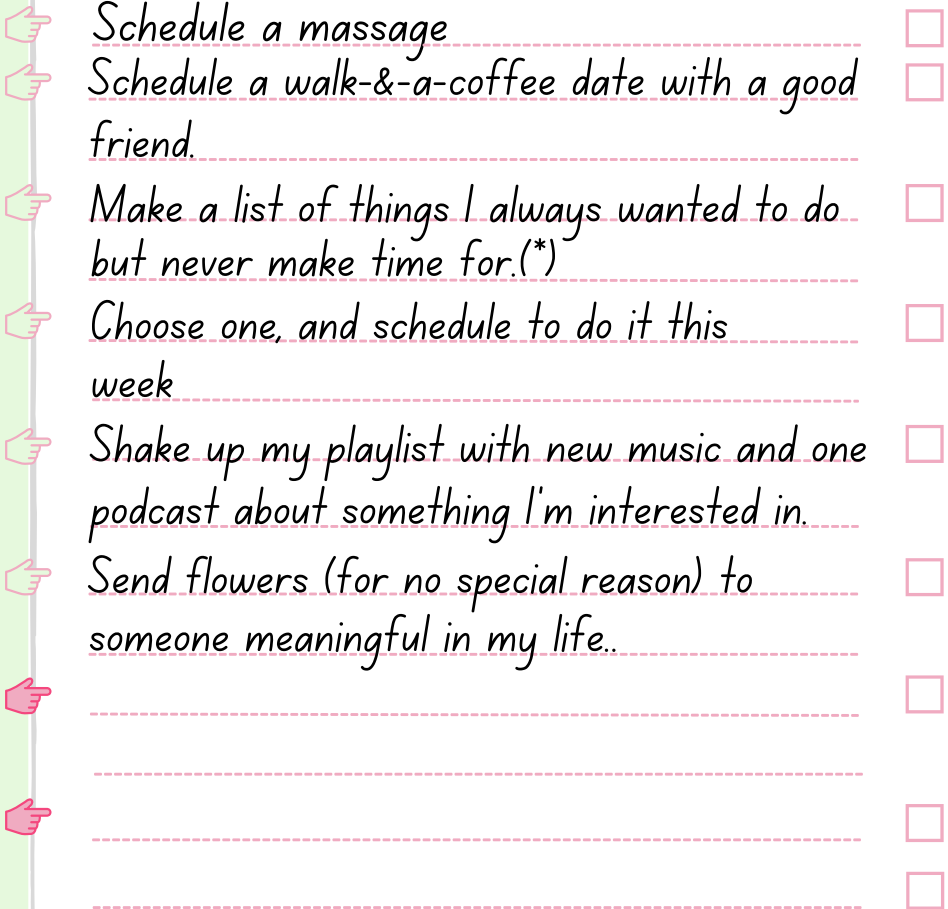 Schedule a massage
Schedule a walk-&-a-coffee date with a good
friend.
Make a list of things I always wanted to do
but never make time for.(*)
Choose one, and schedule to do it this
week
Shake up my playlist with new music and one
podcast about something I'm interested in.
Send flowers (for no special reason) to
someone meaningful in my life..